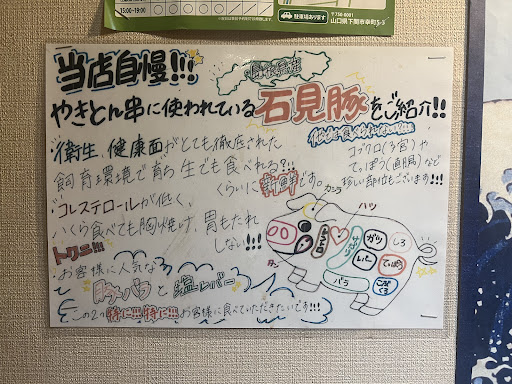 15:00～19:00
駐車場あります
〒750-0001
山口県下関市幸町5-3
当店自慢!!!
島根県産
やきとん串に使われている石見豚をご紹介!!
衛生、健康面がとても徹底された
飼育環境で育ち生でも食べれる?!!
くらいに新鮮です。
コブクロ(子宮)や
てっぽう(直腸)など
珍しい部位もございます!!!
コレステロールが低く、
いくら食べても胸焼け、胃もたれ
しない!!!
トクニ!!!
お客様に人気な
豚バラと塩レバー
この2つ特に!!!特に!!!お客様に食べていただきたいです!!!
カシラ
ハツ
タン
ガツ
しろ
レバー
てっぽう
バラ
こぶくろ